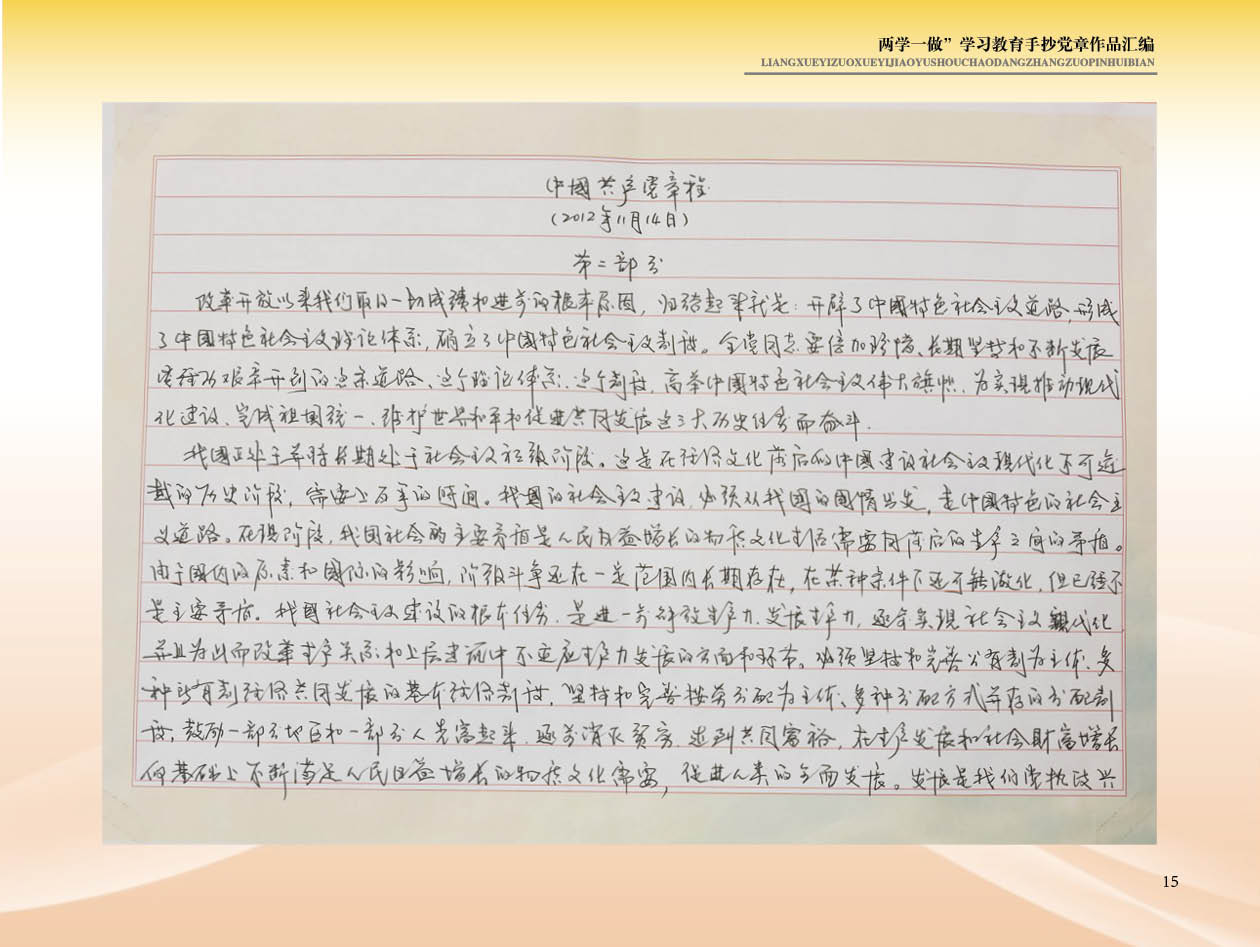 两学一做”学习教育手抄党章作品汇编
LIANGXUEYIZUOXUEYIJIAOYUSHOUCHAODANGZHANGZUOPINHUIBIAN
中國共产党章程
(2012年11月14日)
第二部分
改革开放以来我们取得一切成绩和进步的根本原因,归结起来就是:开辟了中國特色社会主义道路,形成
了中国特色社会主义理论体系,确立了中国特色社会主义制度。全党同志要倍加珍惜、长期坚持和不断发展
党历经艰辛开创的这条道路、这个理论体系、这个制度,高举中國特色社会主义伟大旗帜,为实现推动现代
化建设、完成祖国统一、维护世界和平和促进共同发展这三大历史任务而奋斗.
我國正处于并将长期处于社会主义初级阶段。这是在经济文化落后的中國建设社会主义现代化不可逾
越的历史阶段,需要上百年的时间。我國的社会主义建设,必须从我國的國情出发,走中國特色的社会主
义道路。在现阶段,我国社会的主要矛盾是人民日益增长的物质文化生活需要同落后的生产之间的矛盾。
由于國内的原素和國际的影响,阶级斗争还在一定范围内长期存在,在某种条件下还可能激化,但已经不
是主要矛盾。我國社会主义建设的根本任务,是进一步解放生产力,发展生产力,逐步实现社会主义现代化,
并且为此而改革生产关系和上层建筑中不适应生产力发展的方面和环节。必须坚持和完善公有制为主体、多
种所有制经济共同发展的基本经济制度,坚持和完善按劳分配为主体、多种分配方式并存的分配制
度,鼓励一部分地区和一部分人先富起来,逐步消灭贫穷,达到共同富裕,在生产发展和社会财富增长
的基础上不断满足人民日益增长的物质文化需要,促进人类的全面发展。发展是我们党执政兴
15